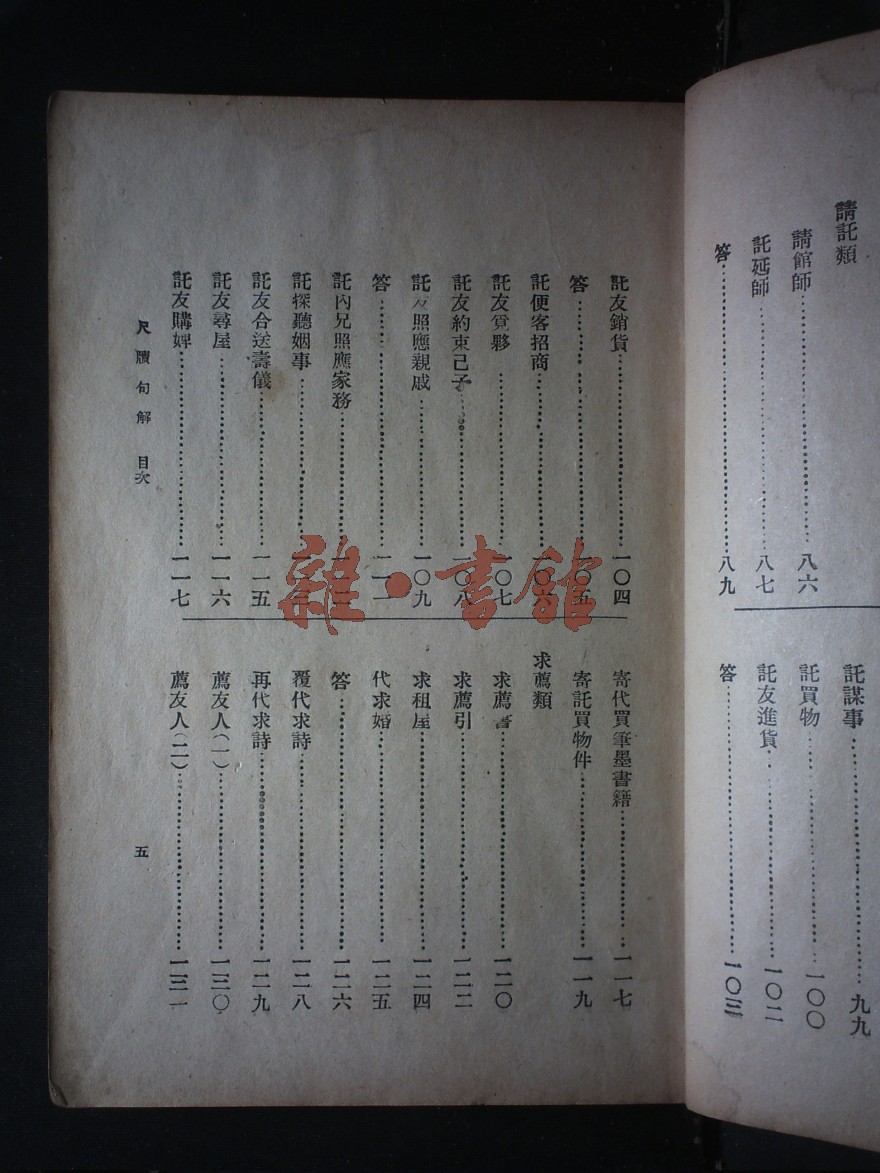 請託類
請館師……八六
託延師……八七
答……八九
託謀事……九九
託買物……一〇〇
託友進貨……一〇二
答……一〇三
託友銷貨……一〇四
答……一〇五
託便客招商……一〇六
託友覓夥……一〇七
託友約束己子……一〇八
託友照應親戚……一〇九
答……一一一
託內兄照應家務
託探聽姻事
託友合送壽儀……一一五
託友尋屋……一一六
託友購婢……一一七
寄代買筆墨書籍……一一七
寄託買物件……一一九
求薦類
求薦書……一二〇
求薦引……一二二
求租屋……一二四
代求婚……一二五
答……一二六
覆代求詩……一二八
再代求詩……一二九
薦友人(一)……一三〇
薦友人(二)……一三一
尺牘句解 目次
五
雜·書館